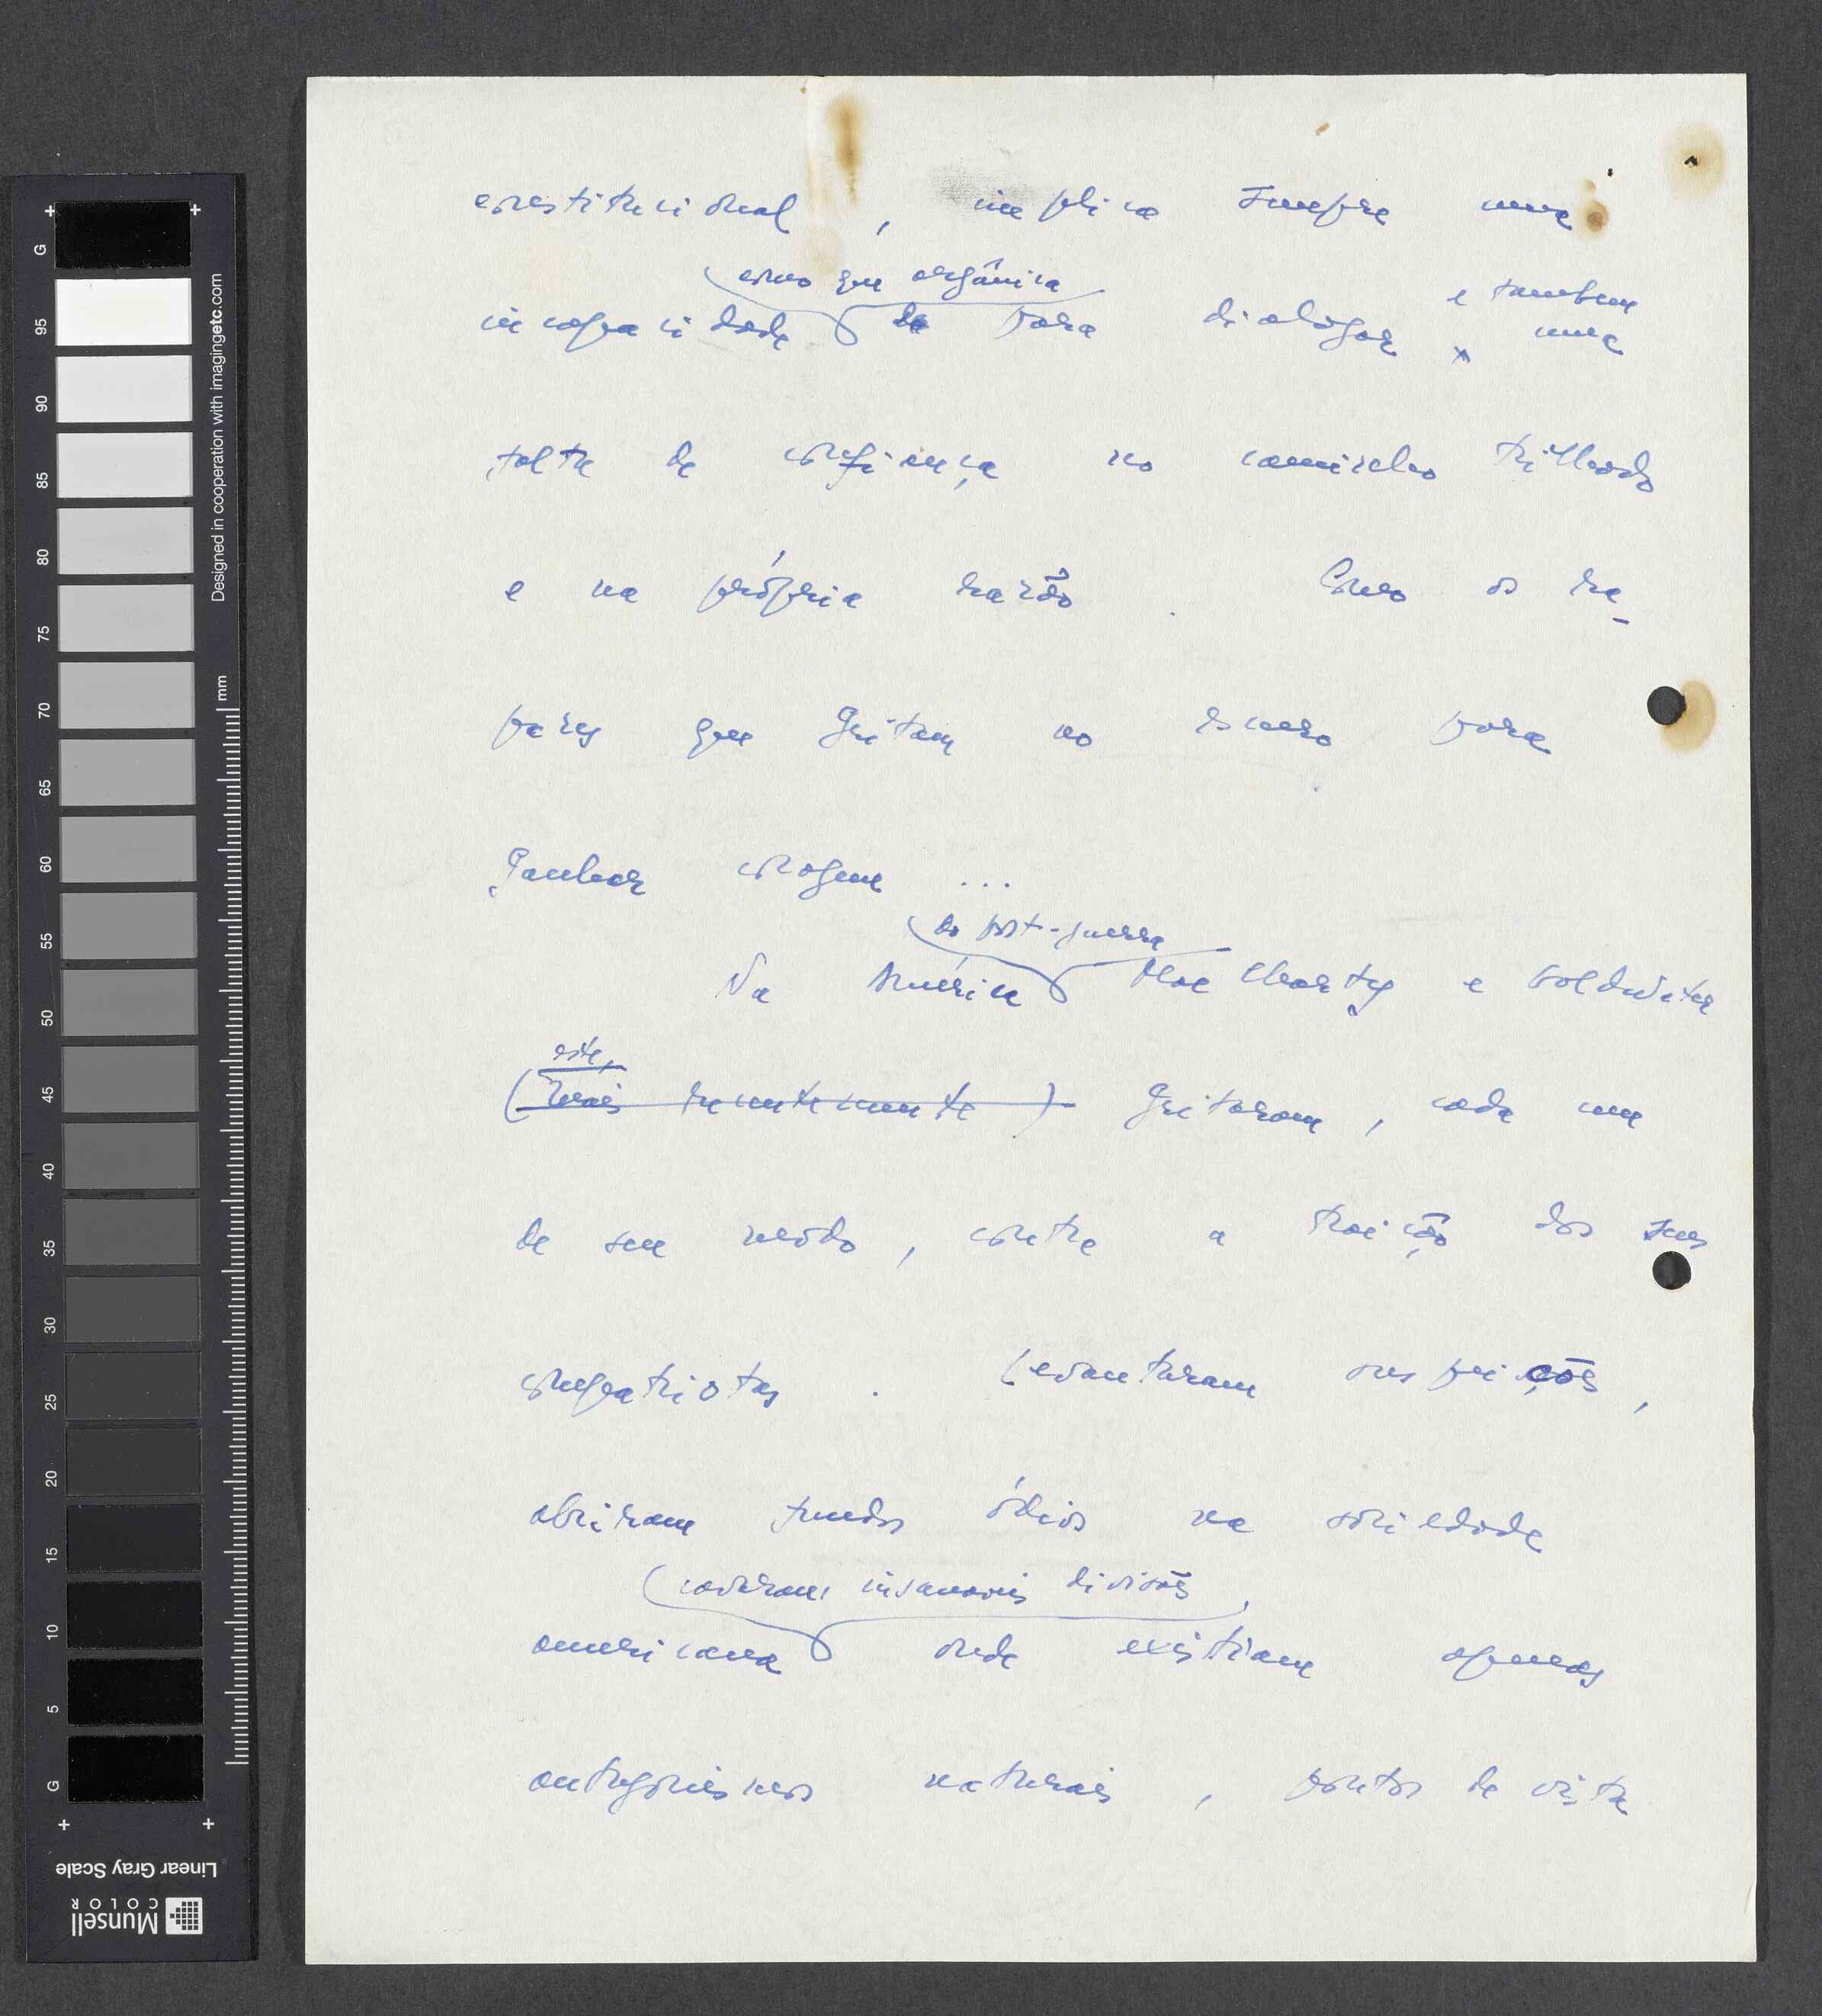 constitucional, implica sempre uma
como que orgânica
e tambem
incapacidade de para dialogar x uma
falta de confiança no caminho trilhado
e na própria razão. Como os ra-
pazes que gritam no escuro para
ganhar coragem ...
do post-guerra
Na América Mac Charty e Goldwater
este,
(mais recentemente) gritaram, cada um
de seu modo, contra a traição dos seus
compatriotas. Levantaram suspeições,
abriram fundos ódios na sociedade
cavaram insanáveis divisões,
americana onde existiam apenas
antagonismos naturais, pontos de vista
G
95
90
85
80
75
70
65
60
55
50
45
40
35
30
25
20
15
10
5
G
mm
Designed in cooperation with imagingetc.com
Linear Gray Scale
Munsell
COLOR